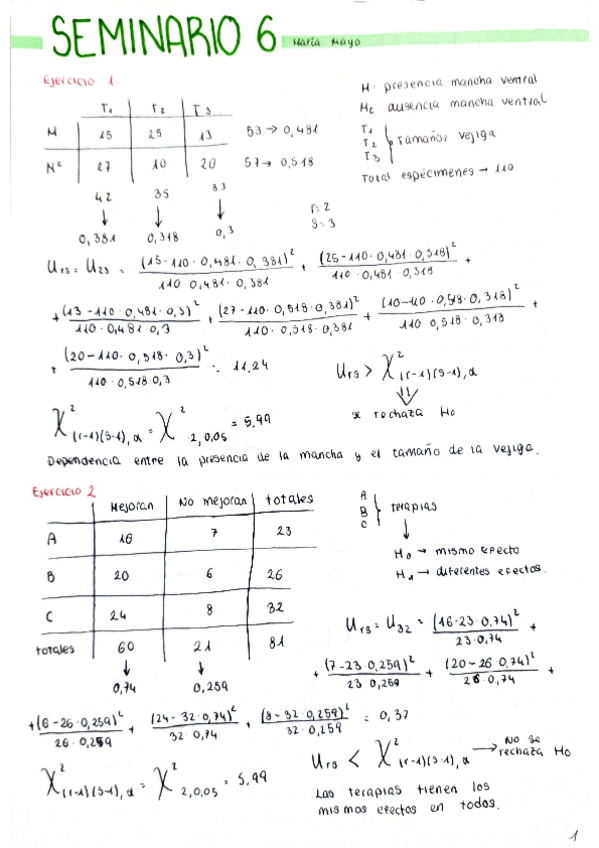 SEMINARIO 6 María Mayo
Ejercicio 1
T1 T2 T3
M 15 25 13 53 → 0,481
Mᶜ 27 10 20 57 → 0,518
42 35 33
0,381 0,318 0,3
M: presencia mancha ventral
Mc ausencia mancha ventral
T1
T2 } Tamaños vejiga
T3
Total espécimenes → 110
r: 2
s: 3
Urs = U23 = (15-110·0,481·0,381)² / 110·0,481·0,381 + (25-110·0,481·0,318)² / 110·0,481·0,318 +
+ (13-110·0,481·0,3)² / 110·0,481·0,3 + (27-110·0,518·0,381)² / 110·0,518·0,381 + (10-110·0,518·0,318)² / 110·0,518·0,318 +
+ (20-110·0,518·0,3)² / 110·0,518·0,3 = 11,24
Urs > χ²(r-1)(s-1),α
⇓
se rechaza H0
χ²(r-1)(s-1),α = χ²2,0,05 = 5,99
Dependencia entre la presencia de la mancha y el tamaño de la vejiga.
Ejercicio 2
Mejoran No mejoran totales
A 16 7 23
B 20 6 26
C 24 8 32
totales 60 21 81
0,74 0,259
A
B } terapias
C
H0 → mismo efecto
H1 → diferentes efectos.
Urs = U32 = (16-23·0,74)² / 23·0,74 +
+ (7-23·0,259)² / 23·0,259 + (20-26·0,74)² / 26·0,74 +
+ (6-26·0,259)² / 26·0,259 + (24-32·0,74)² / 32·0,74 + (8-32·0,259)² / 32·0,259 = 0,37
Urs < χ²(r-1)(s-1),α → No se rechaza H0
χ²(r-1)(s-1),α = χ²2,0,05 = 5,99
Las terapias tienen los
mismos efectos en todos.
1